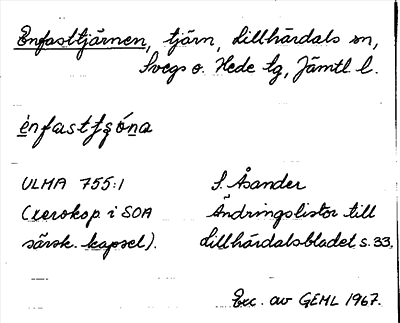 Enfasttjärnen, tjärn, Lillhärdals sn,
Svegs o. Hede tg, Jämtl l.
ènfastfsȯ́na
ULMA 755:1 S. Åsander
(xerokop i SOA Ändringslistor till
särsk. kapsel). Lillhärdalsbladet s. 33.
Exc. av GEHL 1967.